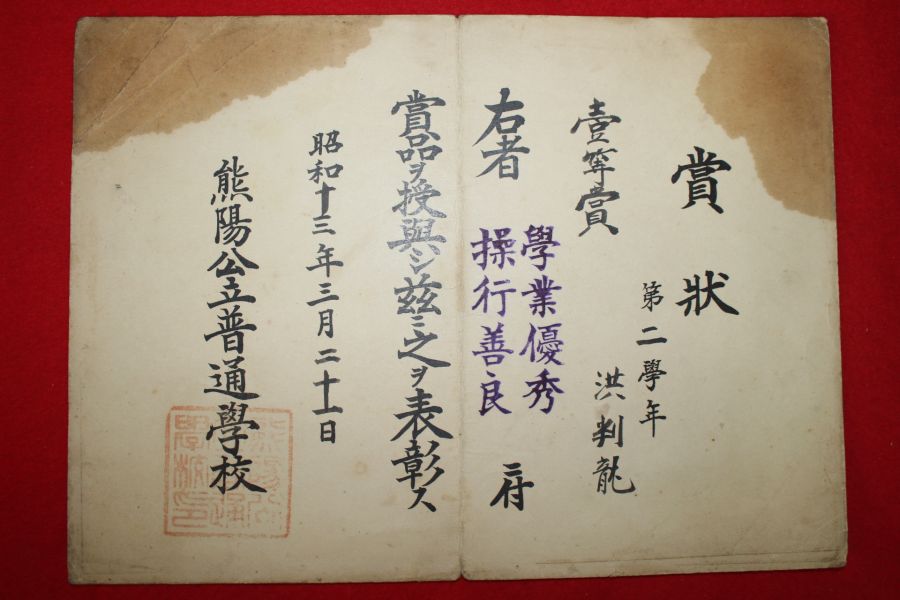 賞狀
第二學年
壹等賞 洪判龍
右者 學業優秀
操行善良 ニ付
賞品ヲ授與シ玆ニ之ヲ表彰ス
昭和十三年三月二十一日
熊陽公立普通學校